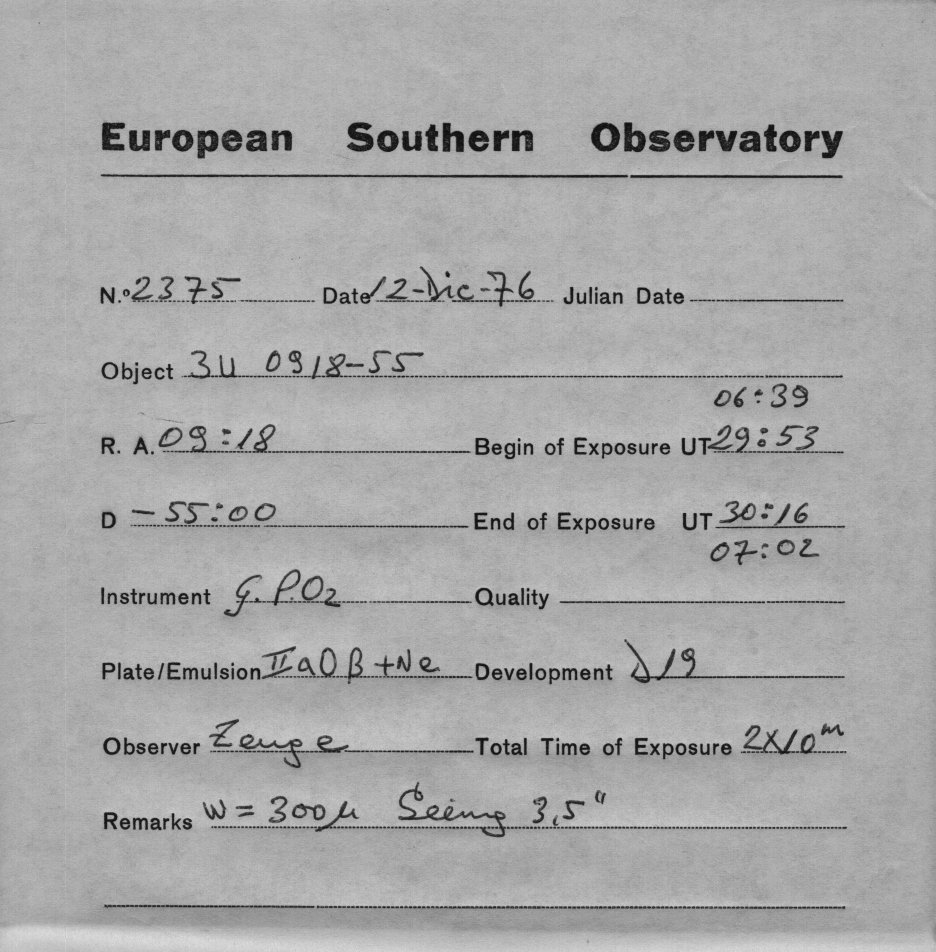 European Southern Observatory
N.º 2375 Date 12-Dic-76 Julian Date
Object 3U 0918-55
06:39
R. A. 09:18 Begin of Exposure UT 29:53
D -55:00 End of Exposure UT 30:16
07:02
Instrument G.P.O2 Quality
Plate/Emulsion IIaO β +Ne Development D19
Observer Zeuge Total Time of Exposure 2x10m
Remarks W = 300μ Seeing 3,5"